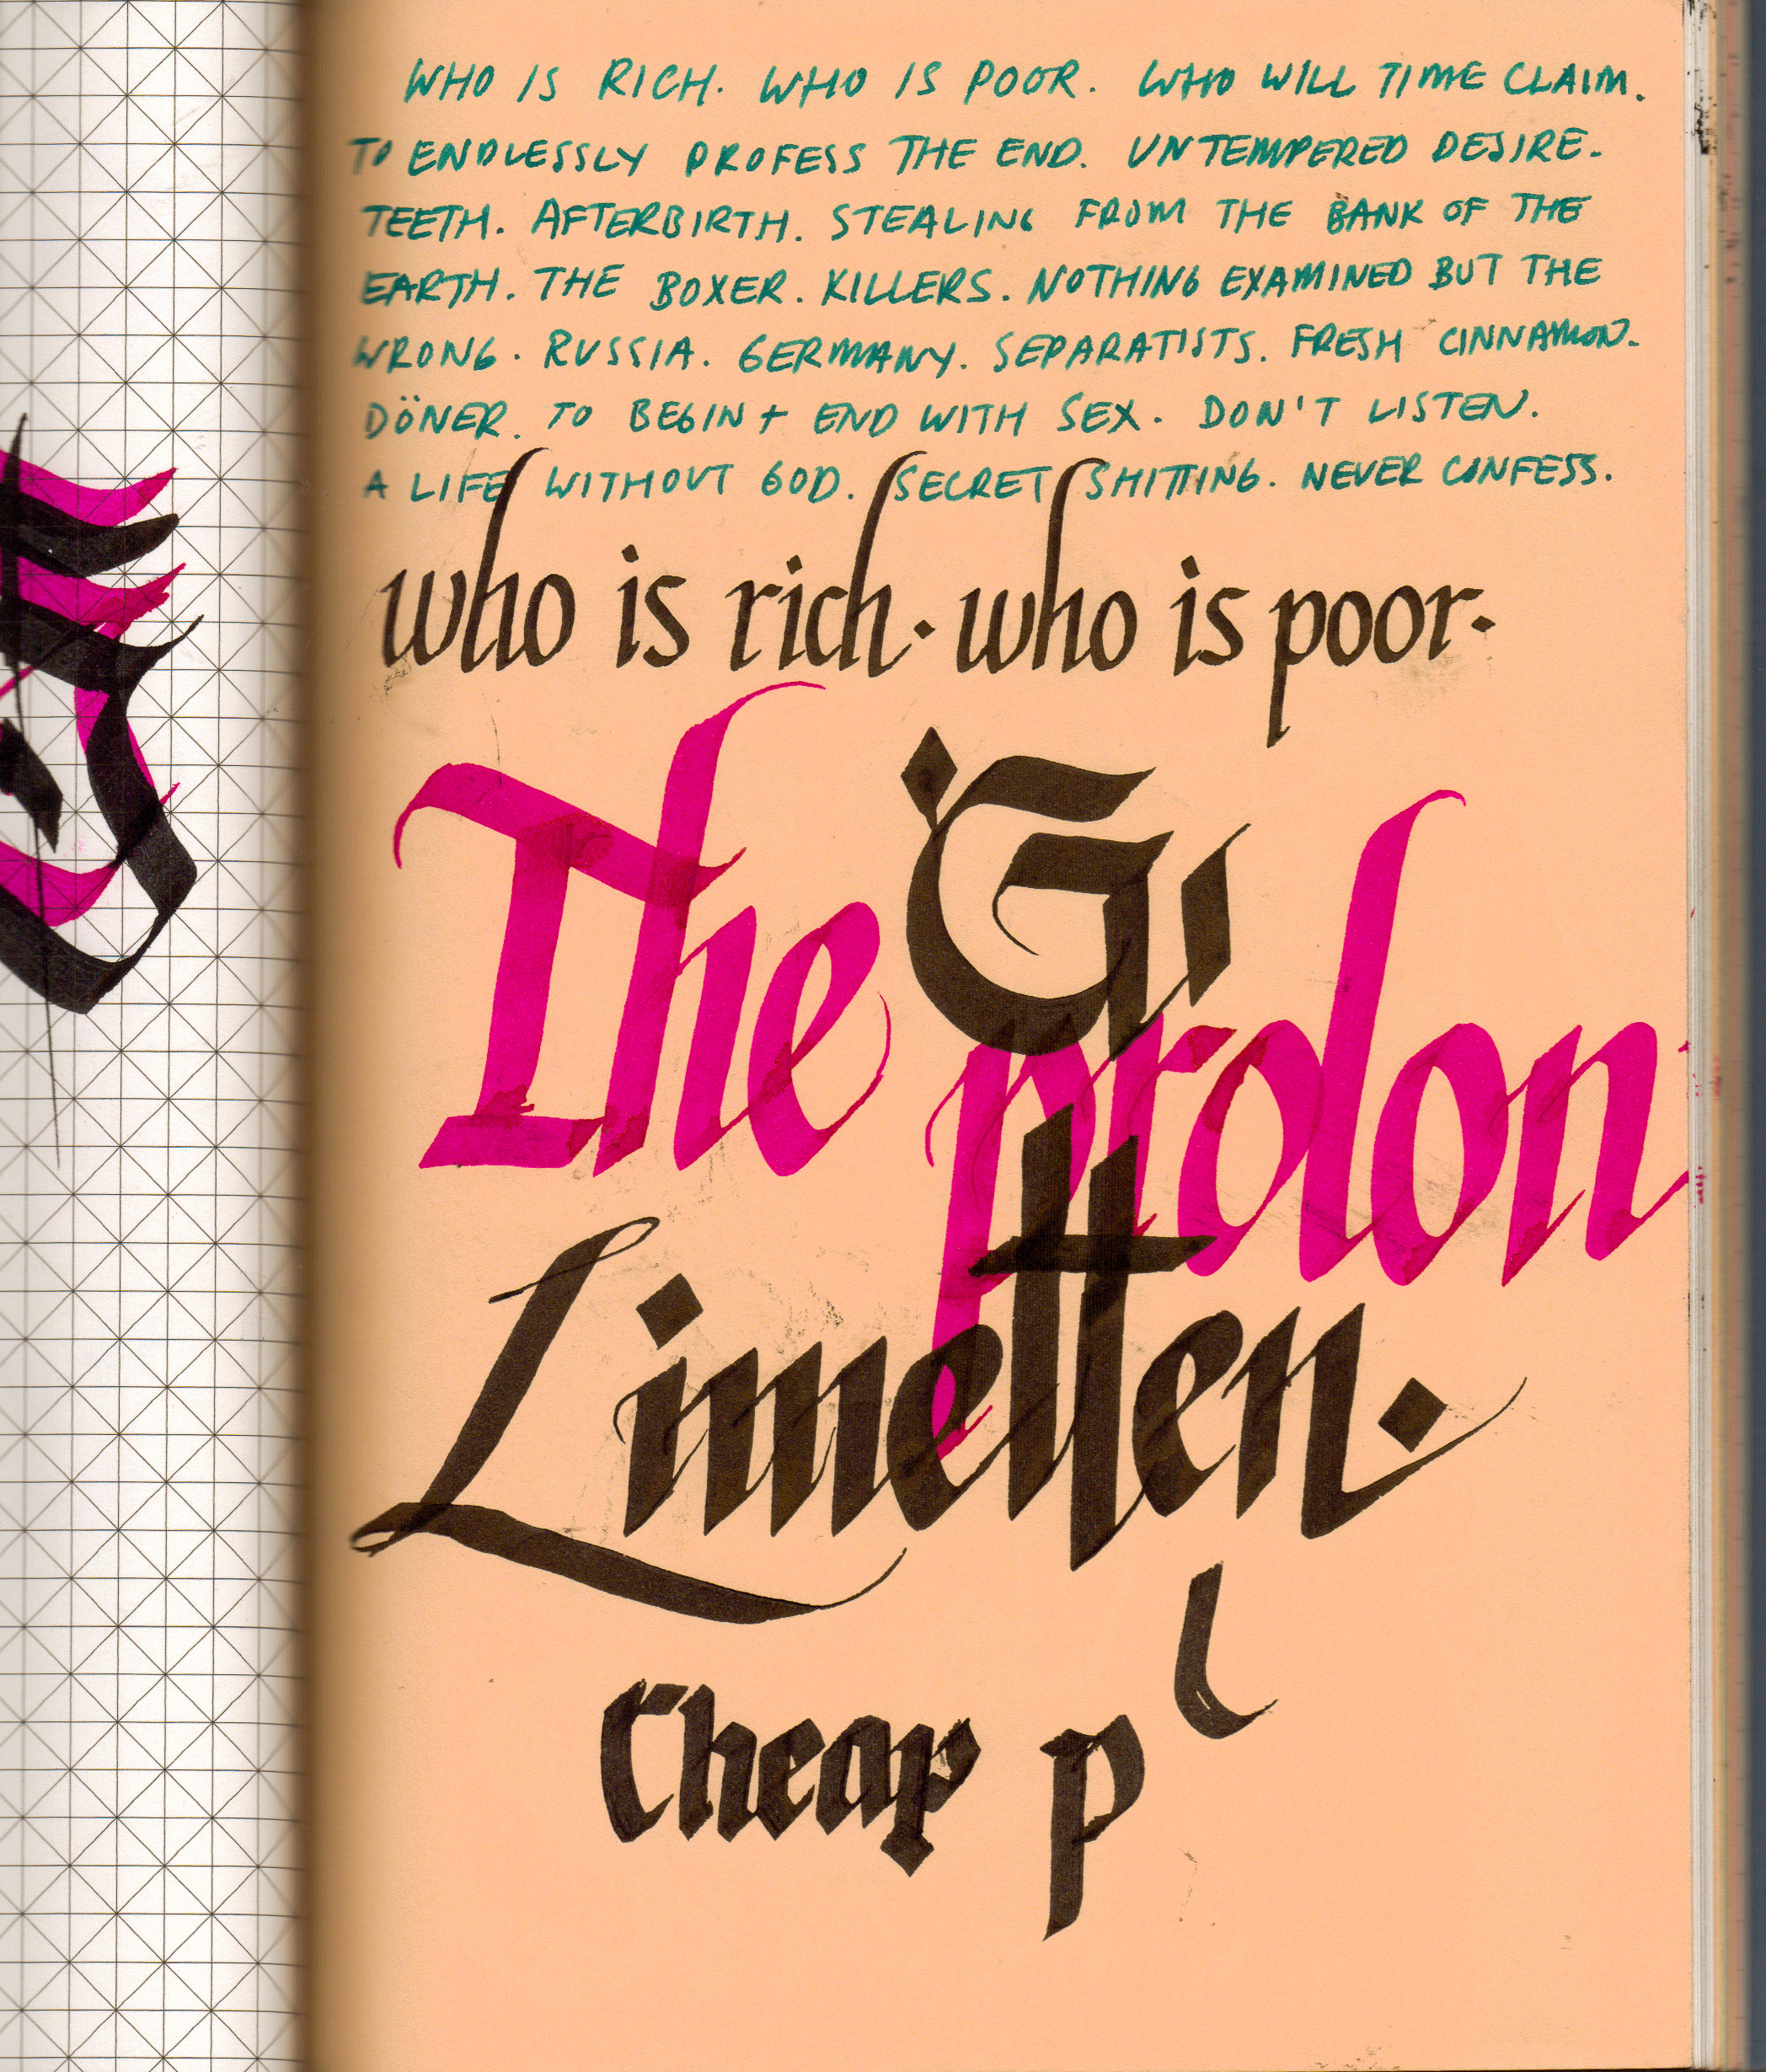 WHO IS RICH. WHO IS POOR. WHO WILL TIME CLAIM.
TO ENDLESSLY PROFESS THE END. UNTEMPERED DESIRE.
TEETH. AFTERBIRTH. STEALING FROM THE BANK OF THE
EARTH. THE BOXER. KILLERS. NOTHING EXAMINED BUT THE
WRONG. RUSSIA. GERMANY. SEPARATISTS. FRESH CINNAMON.
DÖNER. TO BEGIN + END WITH SEX. DON'T LISTEN.
A LIFE WITHOUT GOD. SECRET SHITTING. NEVER CONFESS.
who is rich. who is poor.
The
G
prolon
Limetten.
Cheap p